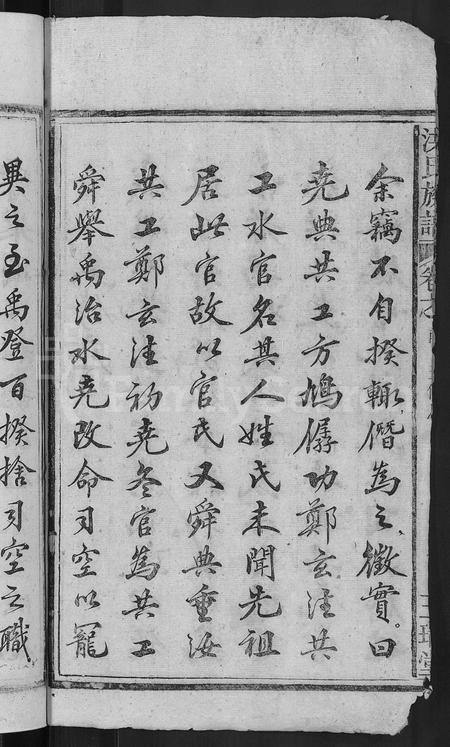 余竊不自揆輙僭為之徵實。曰
堯典共工方鳩僝功鄭玄注共
工水官名其人姓氏未聞先祖
居此官故以官氏又舜典垂汝
共工鄭玄注初堯冬官為共工
舜舉禹治水堯改命司空以寵
異之至禹登百揆捨司空之職
氏族譜